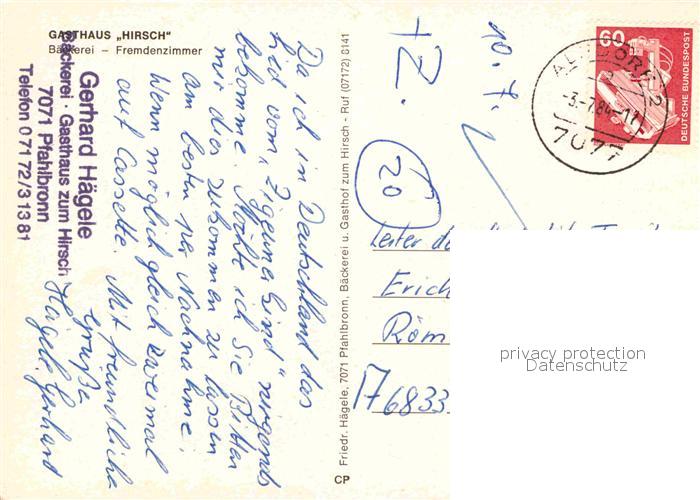 GASTHAUS „HIRSCH"
Bäckerei – Fremdenzimmer
Gerhard Hägele
Bäckerei · Gasthaus zum Hirsch
7071 Pfahlbronn
Telefon 07172/31381
Da ich in Deutschland das
Lied vom „Zigeunerkind" nirgends
bekomme. Möchte ich Sie Bitten
mir dies zukommen zu lassen
am besten per Nachnahme.
Wenn möglich gleich zweimal
auf Cassette. Mit freundliche
Grüße
Hägele Gerhard
Friedr. Hägele, 7071 Pfahlbronn, Bäckerei u. Gasthof zum Hirsch - Ruf (07172) 8141
CP
12.
10.
20
60
DEUTSCHE BUNDESPOST
ALFDORF 2
-3.-1.84-11
7077
Leiter
Erich
Röm
A 6833
privacy protection
Datenschutz